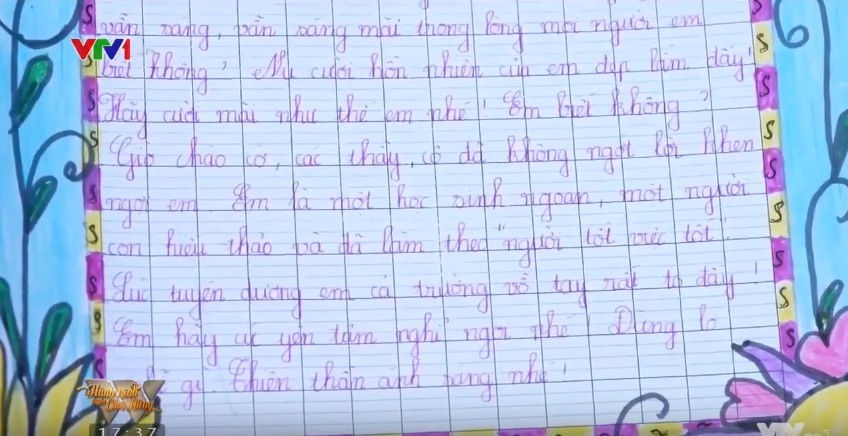 vẫn vang, vẫn sáng mãi trong lòng mọi người em
VTV1
biết không? Nụ cười hồn nhiên của em đẹp lắm đấy!
Hãy cười mãi như thế em nhé! Em biết không?
Giờ chào cờ, các thầy, cô đã không ngớt lời khen
ngợi em. Em là một học sinh ngoan, một người
con hiếu thảo và đã làm theo "người tốt việc tốt".
Lúc tuyên dương em cả trường vỗ tay rất to đấy!
Em hãy cứ yên tâm nghỉ ngơi nhé! Đừng lo
gì Thiên thần ánh sáng nhé!
Hành trình
17:37
VTV